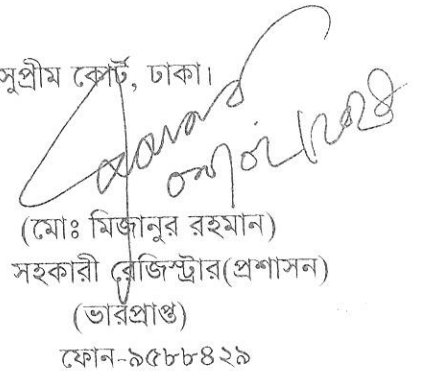 সুপ্রীম কোর্ট, ঢাকা।
(মোঃ মিজানুর রহমান)
সহকারী রেজিস্ট্রার(প্রশাসন)
(ভারপ্রাপ্ত)
ফোন-৯৫৮৮৪২৯